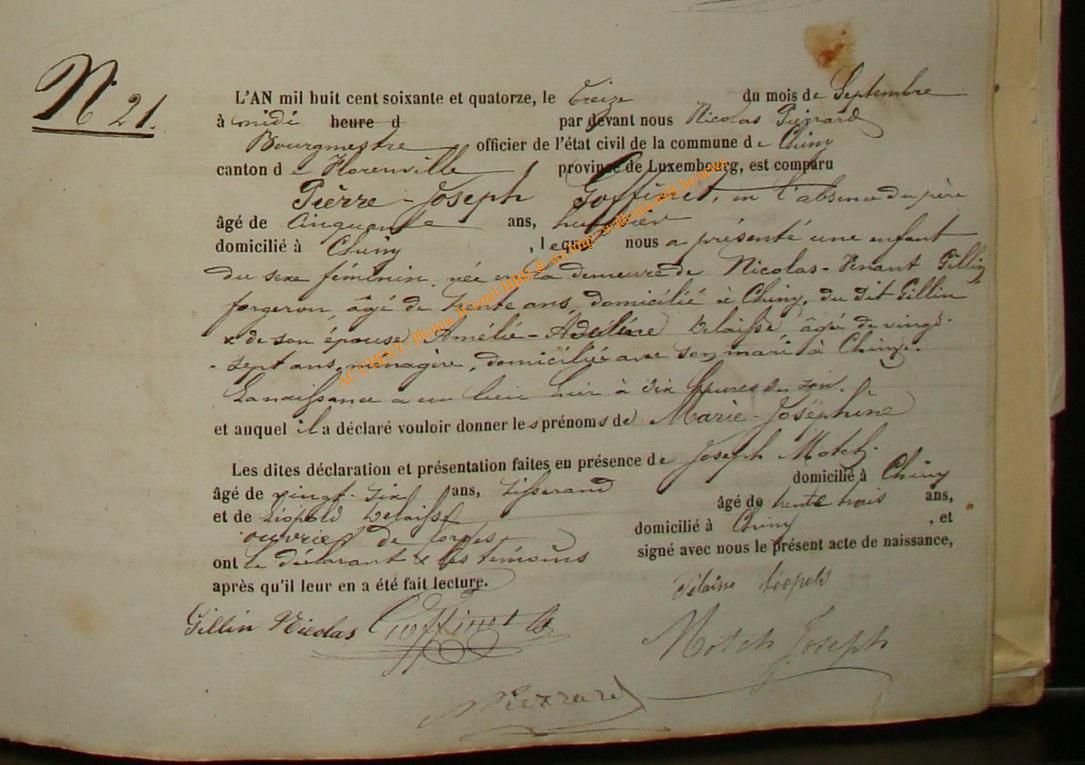 N° 21.
L'AN mil huit cent soixante et quatorze, le treize du mois de Septembre
à midi heure d par devant nous Nicolas Pierrard
Bourgmestre officier de l'état civil de la commune de Chiny
canton de Florenville, province de Luxembourg, est comparu
Pierre-Joseph Goffinet, en l'absence du père
âgé de cinquante ans,
domicilié à Chiny, lequel nous a présenté une enfant
du sexe féminin, née en la demeure de Nicolas-Venant Gillin
forgeron, âgé de trente ans, domicilié à Chiny, du dit Gillin
& de son épouse Amélie-Adeline Delaisse, âgé de vingt-
-sept ans, ménagère, domiciliée avec son mari à Chiny.
La naissance a eu lieu hier à dix heures du soir.
et auquel il a déclaré vouloir donner les prénoms de Marie-Joséphine
Les dites déclaration et présentation faites en présence de Joseph Motch
âgé de vingt-six ans, tisserand domicilié à Chiny
et de Léopold Delaisse âgé de trente trois ans,
ouvrier de forges domicilié à Chiny, et
ont le déclarant & les témoins signé avec nous le présent acte de naissance,
après qu'il leur en a été fait lecture.
Léopold
Gillin Nicolas Goffinet
Motch Joseph
Pierrard